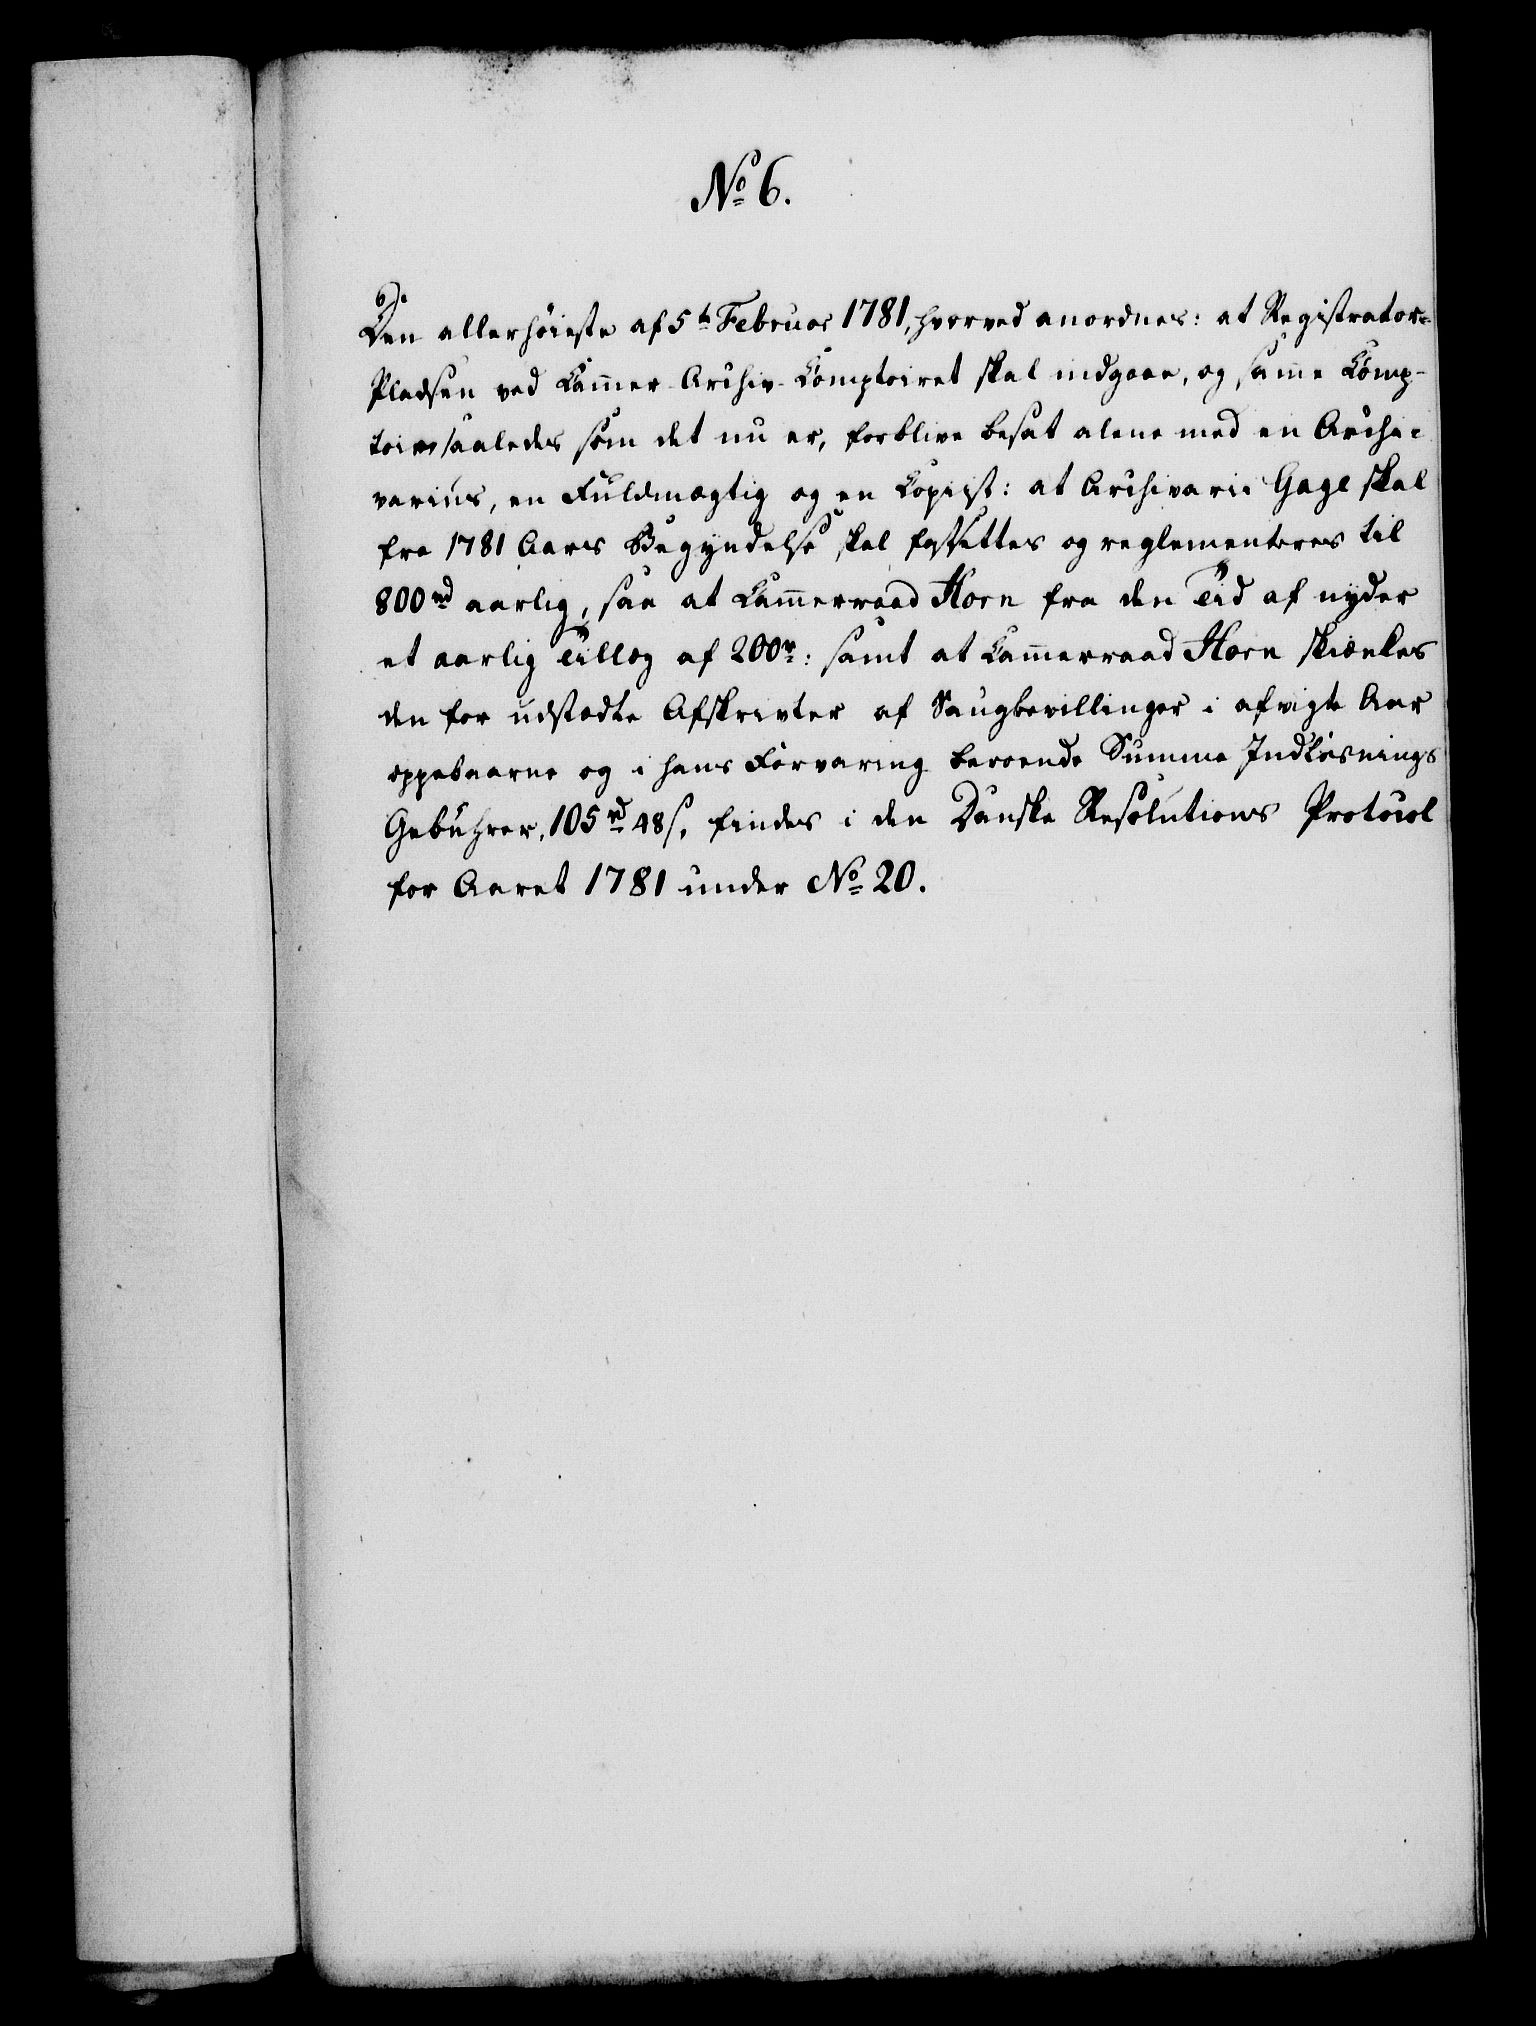 No 6.
6).
Den allerhöieste af 5te Februar 1781, hvorved anordnes: at Registrator-
Pladsen ved Cammer-Archiv-Comptoiret skal indgaae, og samme Comp-
toir saaledes som det nu er, forblive besat alene med en Archi-
varius, en Fuldmægtig og en Copiist: at Archivarii Gage skal
fra 1781 Aars Begyndelse skal fastsættes og reglementeres til
800 rd aarlig, saa at Cammerraad Horn fra den Tid af nyder
et aarlig Tillæg af 200 r: samt at Cammerraad Horn skiænkes
den for udstædte Afskrivter af Saugbevillinger i afvigte Aar
oppebaarne og i hans Forvaring beroende Summa Indløsnings
Gebuhrer, 105 rd 48 s, findes i den Danske Resolutions Protocol
for Aaret 1781 under No 20.